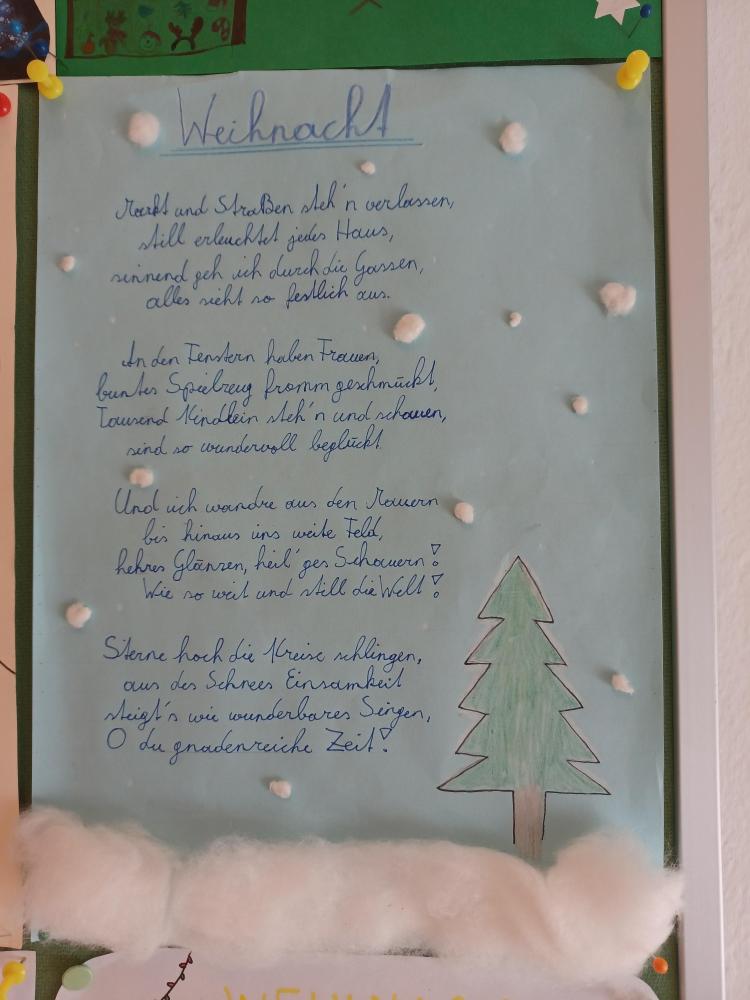 Weihnacht
Markt und Straßen steh'n verlassen,
still erleuchtet jedes Haus,
sinnend geh ich durch die Gassen,
alles sieht so festlich aus.
An den Fenstern haben Frauen,
buntes Spielzeug fromm geschmückt,
Tausend Kindlein steh'n und schauen,
sind so wundervoll beglückt.
Und ich wandre aus den Mauern
bis hinaus ins weite Feld,
hehres Glänzen, heil'ges Schauern!
Wie so weit und still die Welt!
Sterne hoch die Kreise schlingen,
aus des Schnees Einsamkeit
steigt's wie wunderbares Singen,
O du gnadenreiche Zeit!